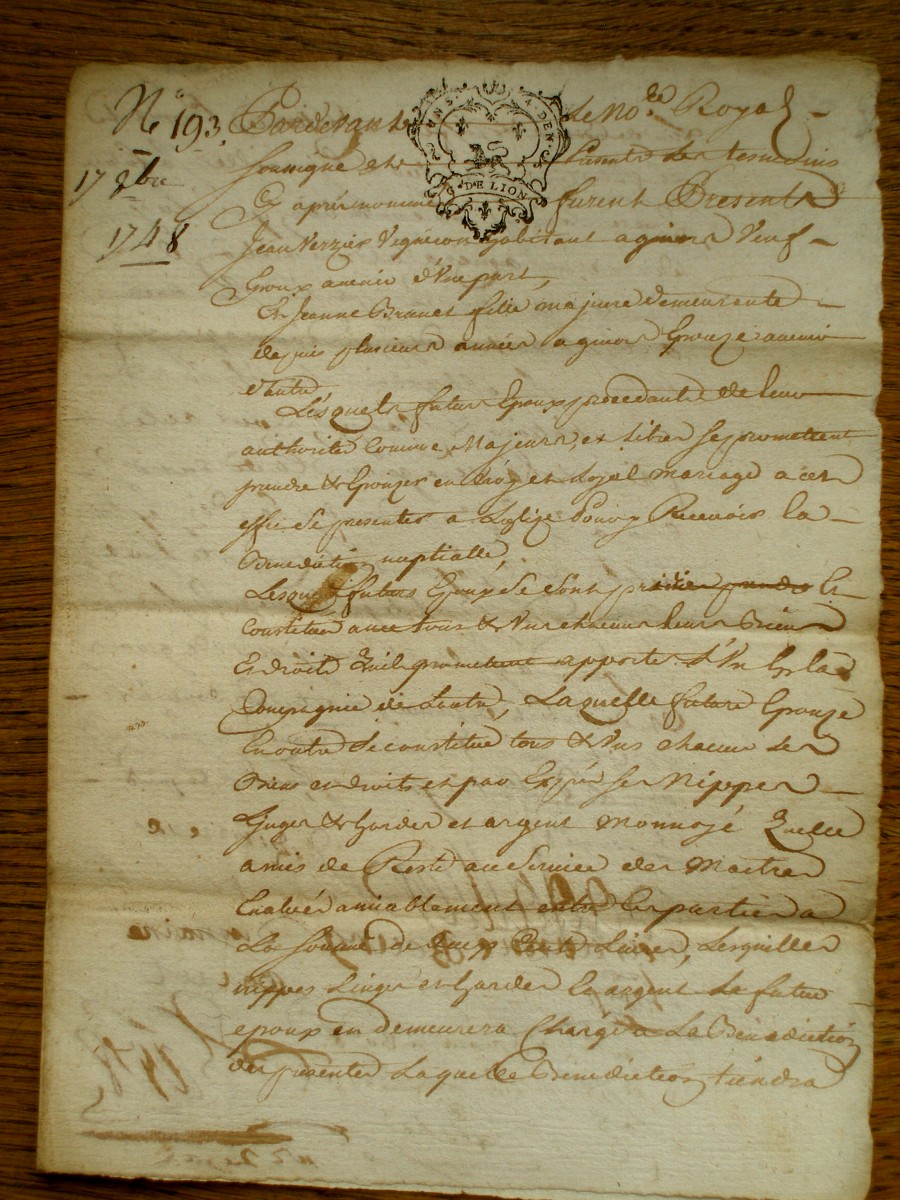 N° 193.
17 9bre
1748
Pardevant le No.re Royal
soussigné et presents les tesmoins
cy aprés nommés furent Presents
Jean Verzier Vigneron habitant a givors Veuf
Epoux avenir d'Une part,
Et Jeanne Brunet fille majeure demeurante
depuis plusieurs années a givors Epouze avenir
d'autre
Lesquels futurs Epoux procedants de leur
authorité comme Majeurs, et libres se promettent
prendre & Epouzer en vray et loyal mariage a cet
effet se presenter a L'eglize Pour y Recevoir la
Benediction nuptialle,
Lesquels futurs Epoux se sont
constitués avec tous & Uns chacuns leurs Biens
Et droits quils promettent apporter l'Un En la
Compagnie de l'autre, Laquelle future Epouze
En outre se constitue tous & Uns chacuns ses
Biens et droits et par Exprés ses Nippes
Linges & hardes et argent monnoyé quelle
a mis de Reste au Service des Maitres
Evalués amiablement entre les parties a
La somme de Cents Livres, Lesquelles
nippes Linges et hardes Et argent Le futur
epoux en demeurera Chargé a La Benediction
des presentes Laquelle Benediction tiendra
G. DE LION